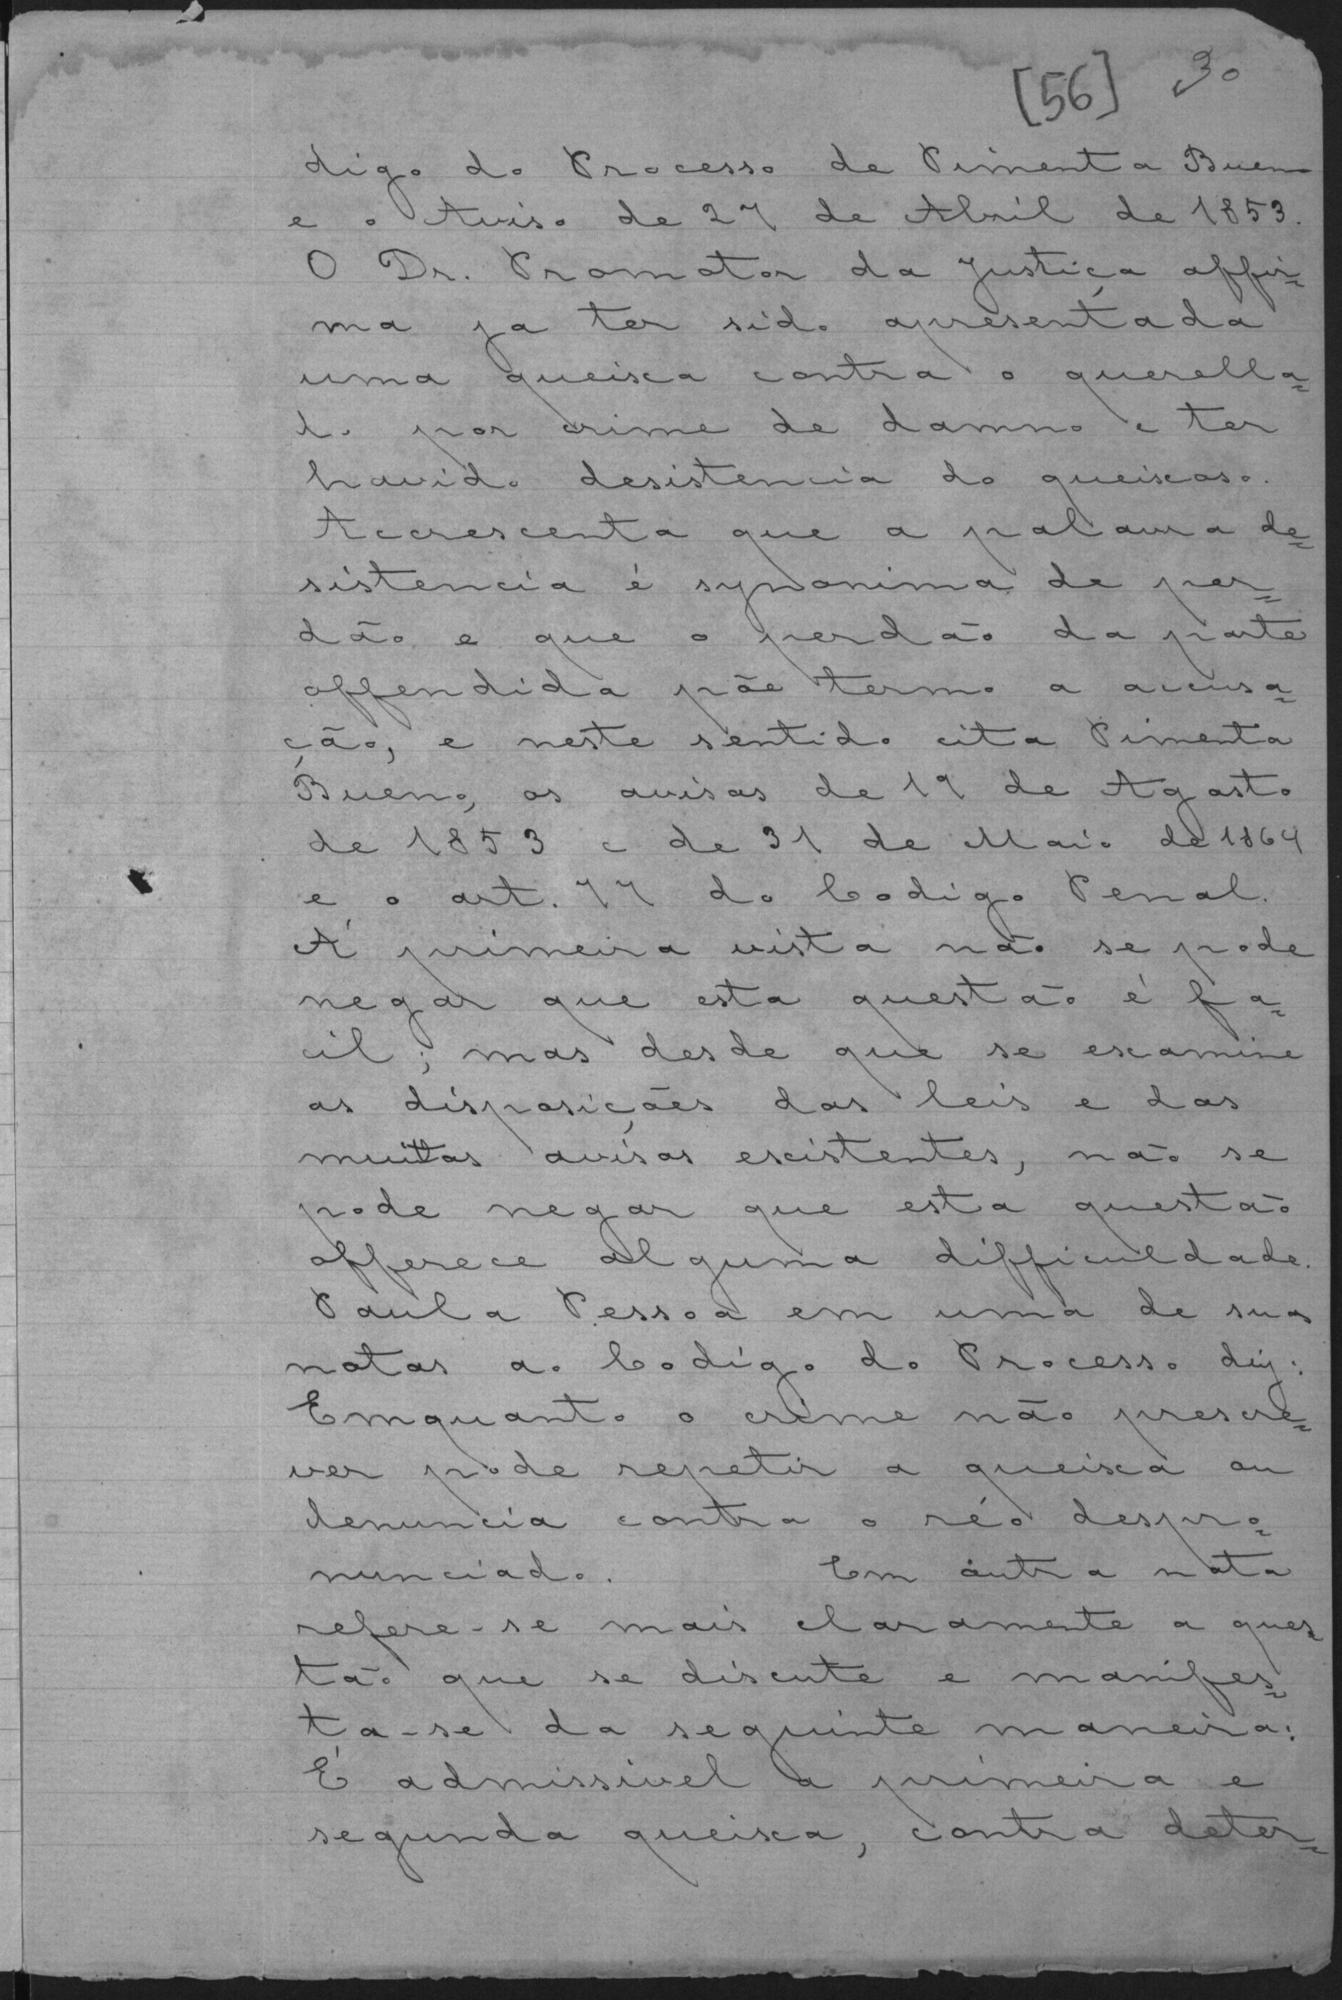 [56] 30
digo do Processo de Pimenta Bueno
e o Aviso de 27 de Abril de 1853.
O Dr. Promotor da Justiça affir=
ma ja ter sido apresentada
uma queixa contra o querella=
do por crime de damno e ter
havido desistencia do queixoso.
Accrescenta que a palavra de=
sistencia é synonima de per=
dão e que o perdão da parte
offendida põe termo a accusa=
ção, e neste sentido cita Pimenta
Bueno, os avisos de 19 de Agosto
de 1853 e de 31 de Maio de 1864
e o art. 77 do Codigo Penal.
Á primeira vista não se pode
negar que esta questão é fa=
cil; mas desde que se examine
as disposições das leis e dos
muitos avisos existentes, não se
pode negar que esta questão
offerece alguma difficuldade.
Paula Pessoa em uma de suas
notas ao Codigo do Processo diz:
Emquanto o crime não prescre=
ver pode repetir a queixa ou
denuncia contra o réo despro=
nunciado. Em outra nota
refere-se mais claramente a ques=
tão que se discute e manifes=
ta-se da seguinte maneira:
É admissivel a primeira e
segunda queixa, contra deter=